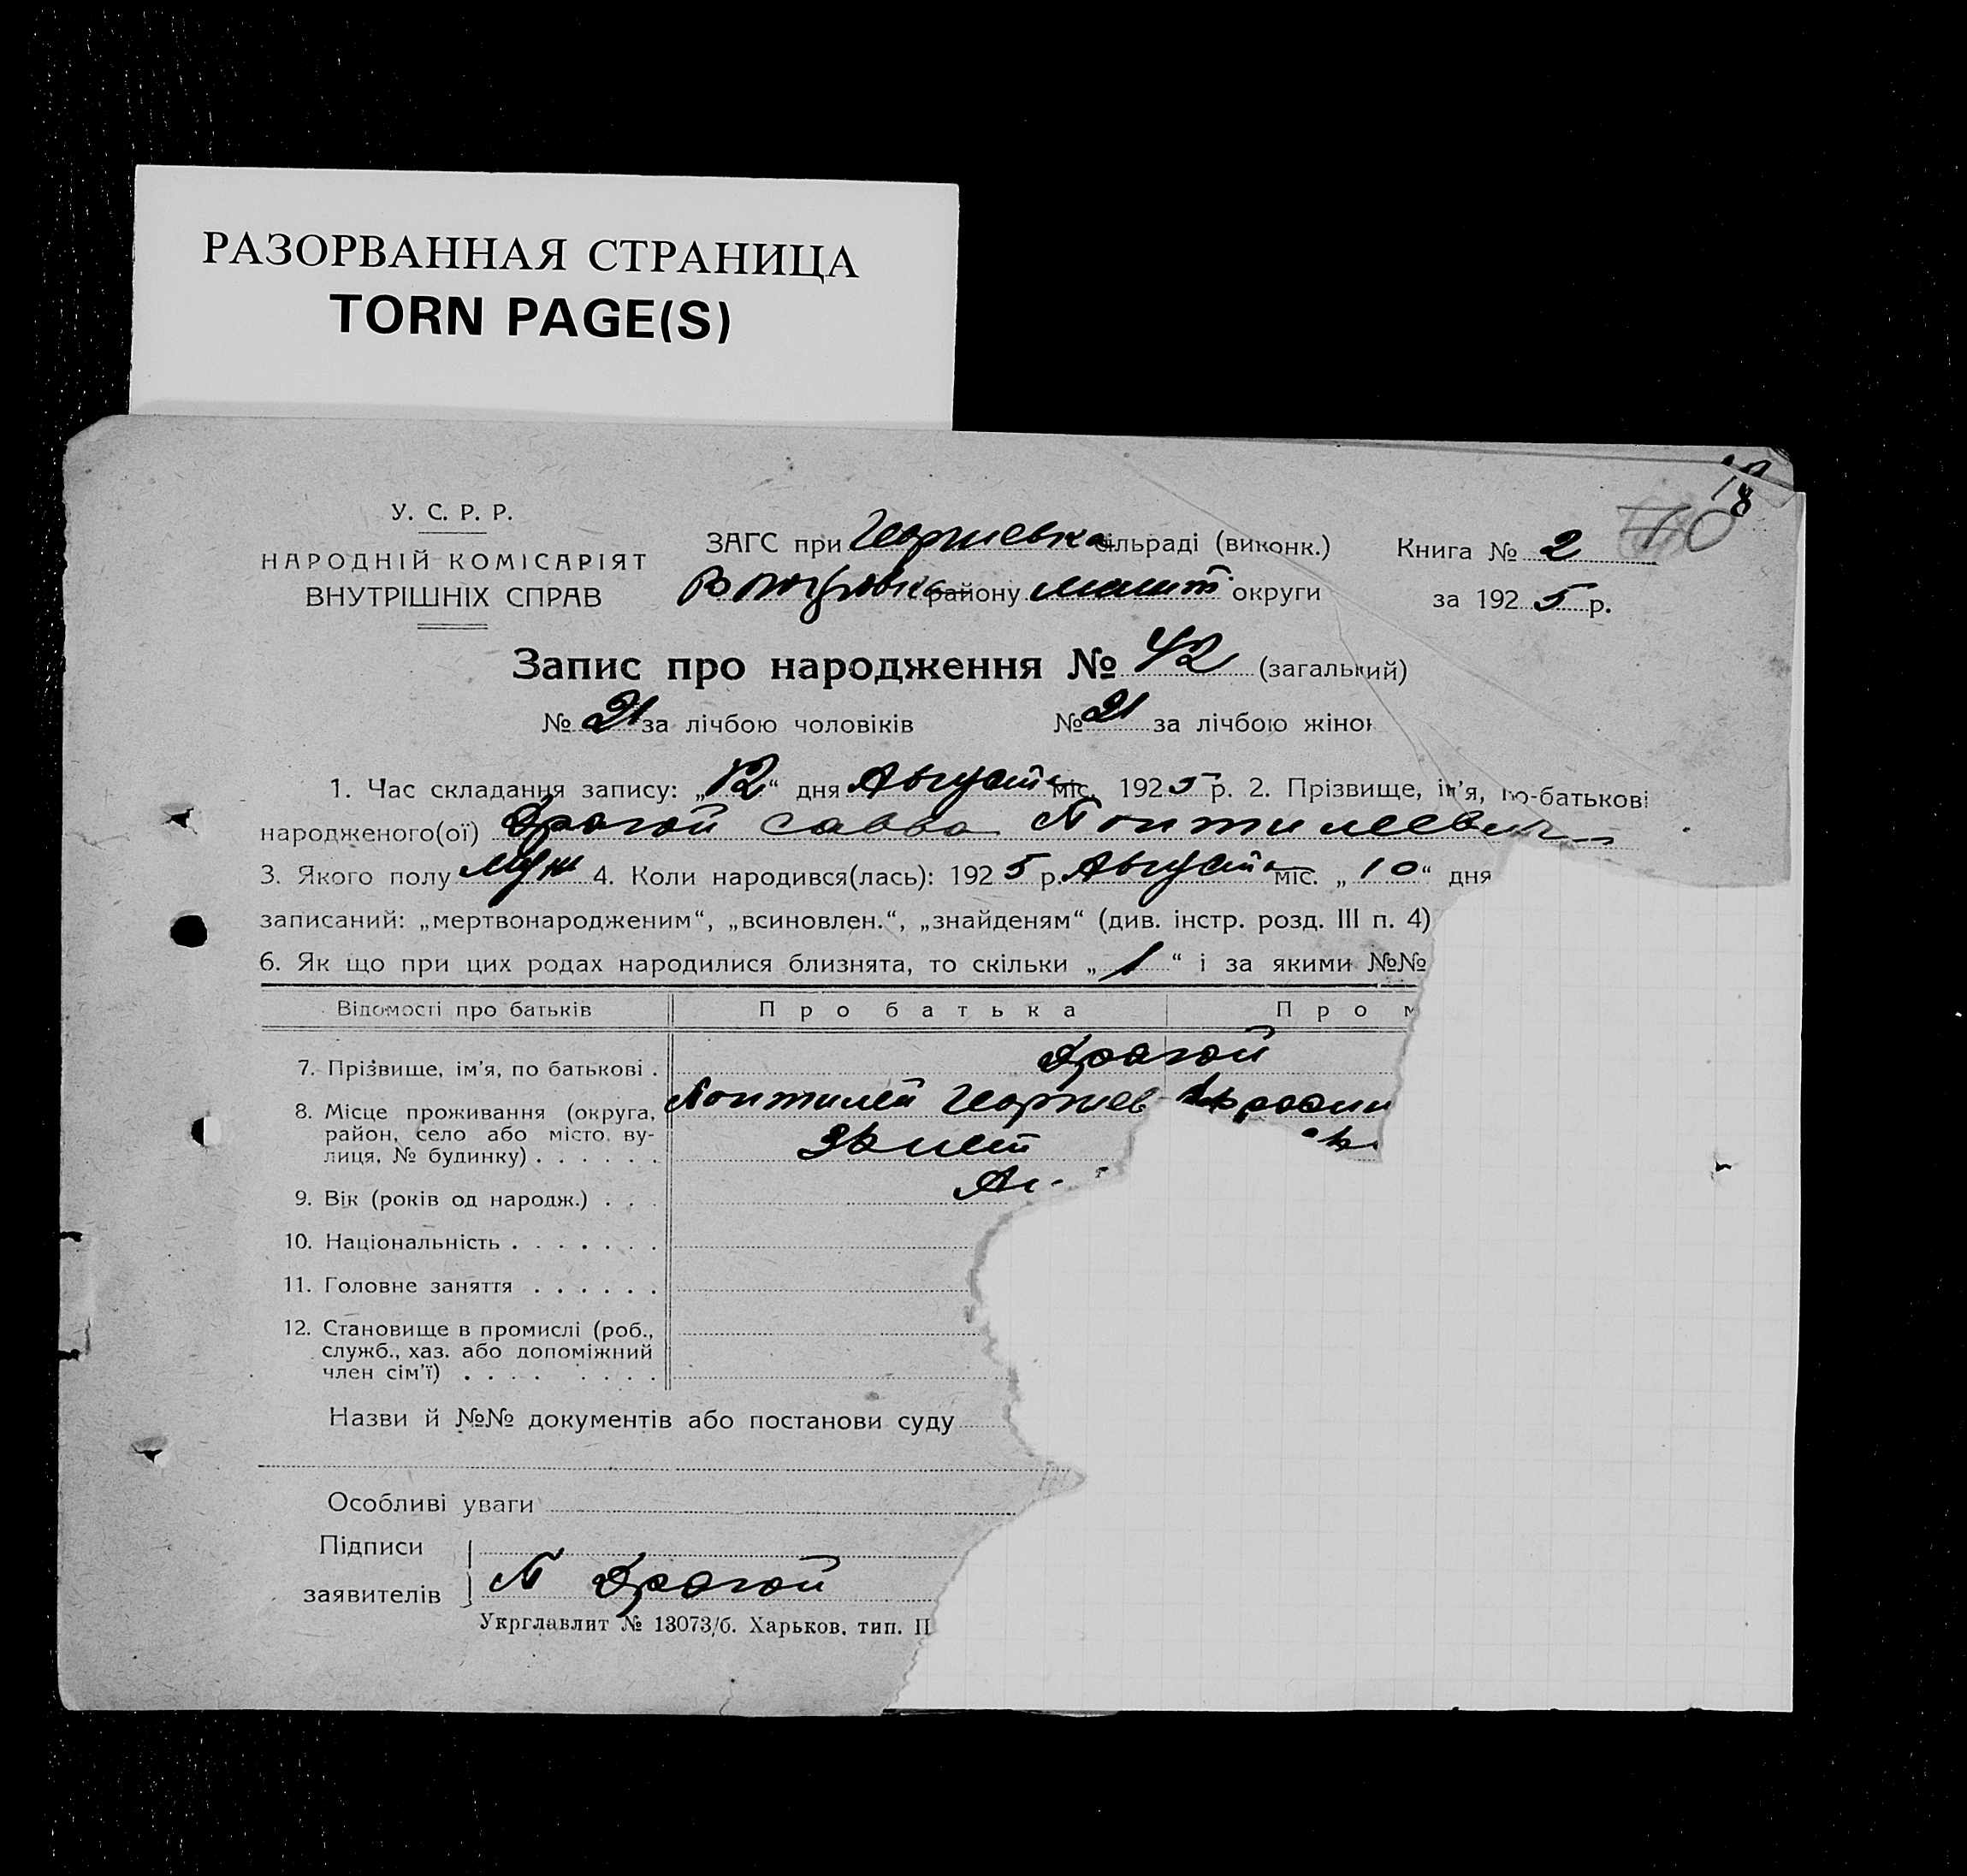 РАЗОРВАННАЯ СТРАНИЦА
TORN PAGE(S)
18
10
У. С. Р. Р.
НАРОДНІЙ КОМІСАРІЯТ
ВНУТРІШНІХ СПРАВ
ЗАГС при Георгиевка сільраді (виконк.)
району округи
Книга № 2
за 1925 р.
Запис про народження № 42 (загальний)
№ 21 за лічбою чоловіків № 21 за лічбою жінок
1. Час складання запису: „12“ дня Августа міс. 1925 р. 2. Прізвище, ім'я, по-батькові
народженого(ої) Драгой Савва Понтилеевич
3. Якого полу муж 4. Коли народився(лась): 1925 р. Августа міс. „10“ дня
записаний: „мертвонародженим“, „всиновлен.“, „знайденям“ (див. інстр. розд. III п. 4)
6. Як що при цих родах народилися близнята, то скільки „1“ і за якими №№
Відомості про батьків Про батька Про м
7. Прізвище, ім'я, по батькові . Драгой
8. Місце проживання (округа, Понтилей Георгиев
район, село або місто, ву-
лиця, № будинку) . . . . . .
9. Вік (років од народж.) . . .
10. Національність . . . . . . .
11. Головне заняття . . . . . .
12. Становище в промислі (роб.,
служб., хаз. або допоміжний
член сім'ї) . . . . . . . .
Назви й №№ документів або постанови суду
Особливі уваги
Підписи
заявителів П Драгой
Укрглавлит № 13073/б. Харьков, тип. П